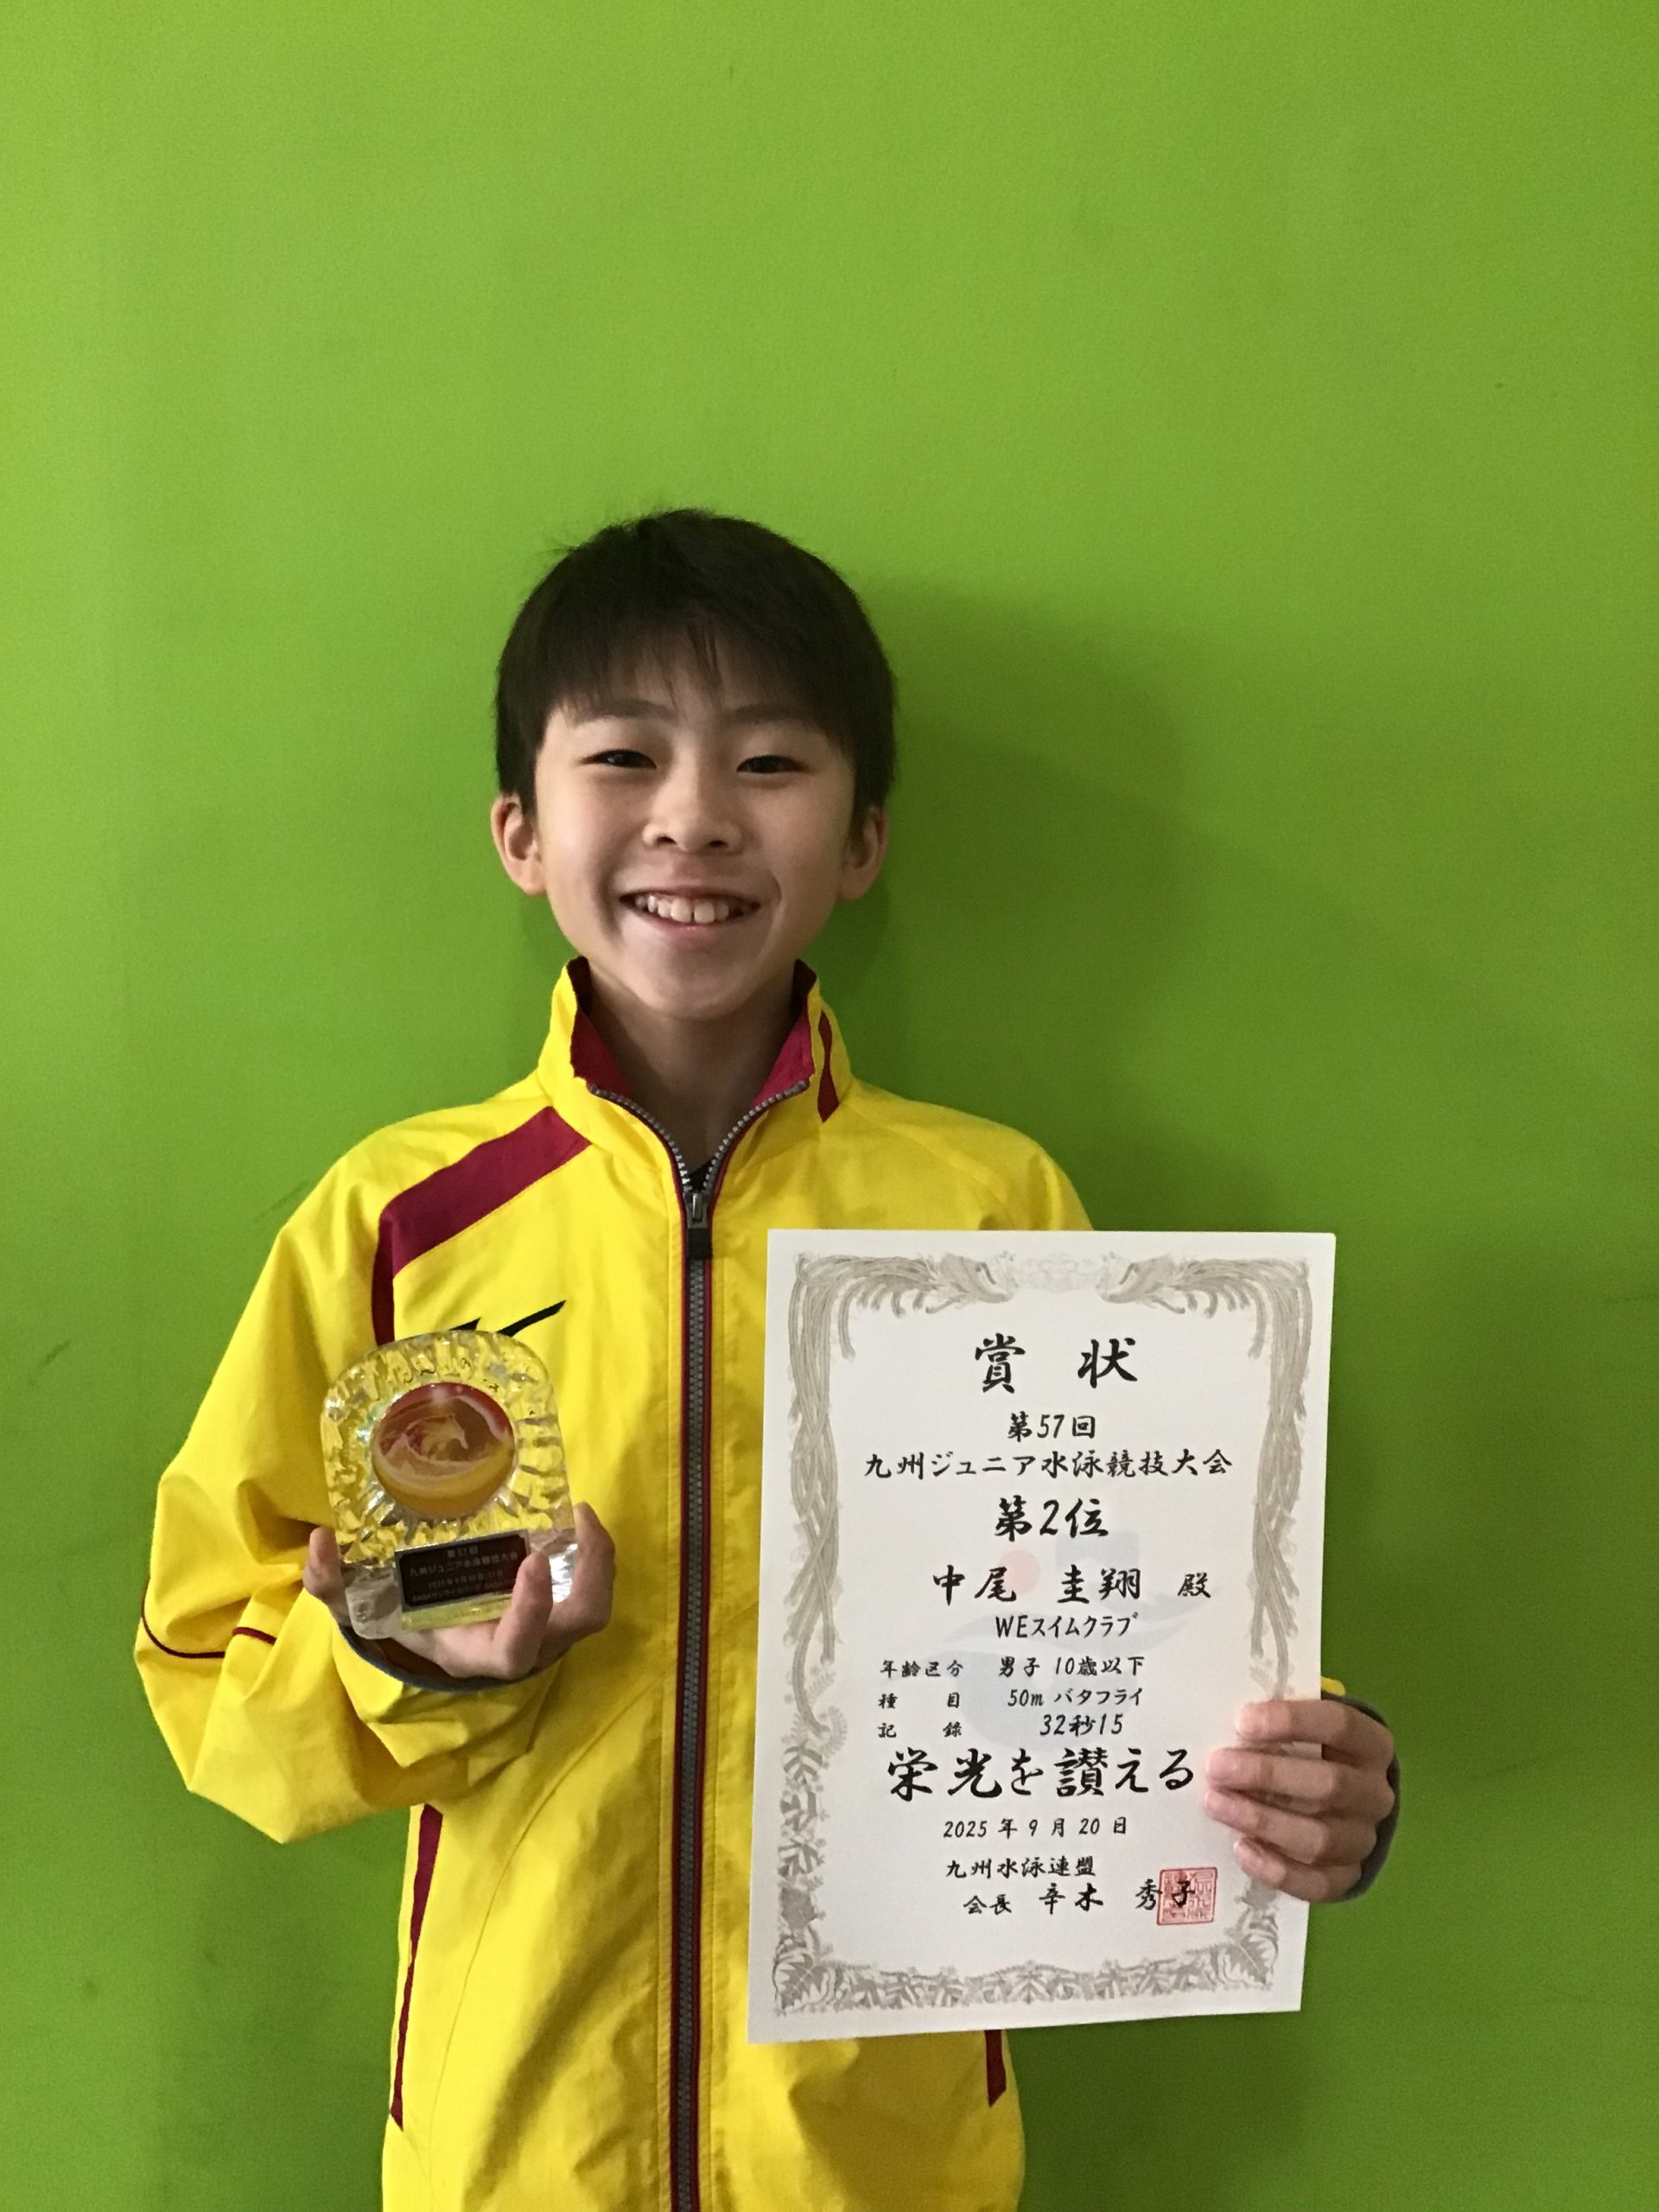 第57回
九州ジュニア水泳競技大会
賞状
第57回
九州ジュニア水泳競技大会
第2位
中尾 圭翔 殿
WEスイムクラブ
年齢区分 男子 10歳以下
種目 50m バタフライ
記録 32秒15
栄光を讃える
2025年9月20日
九州水泳連盟
会長 辛木 秀子